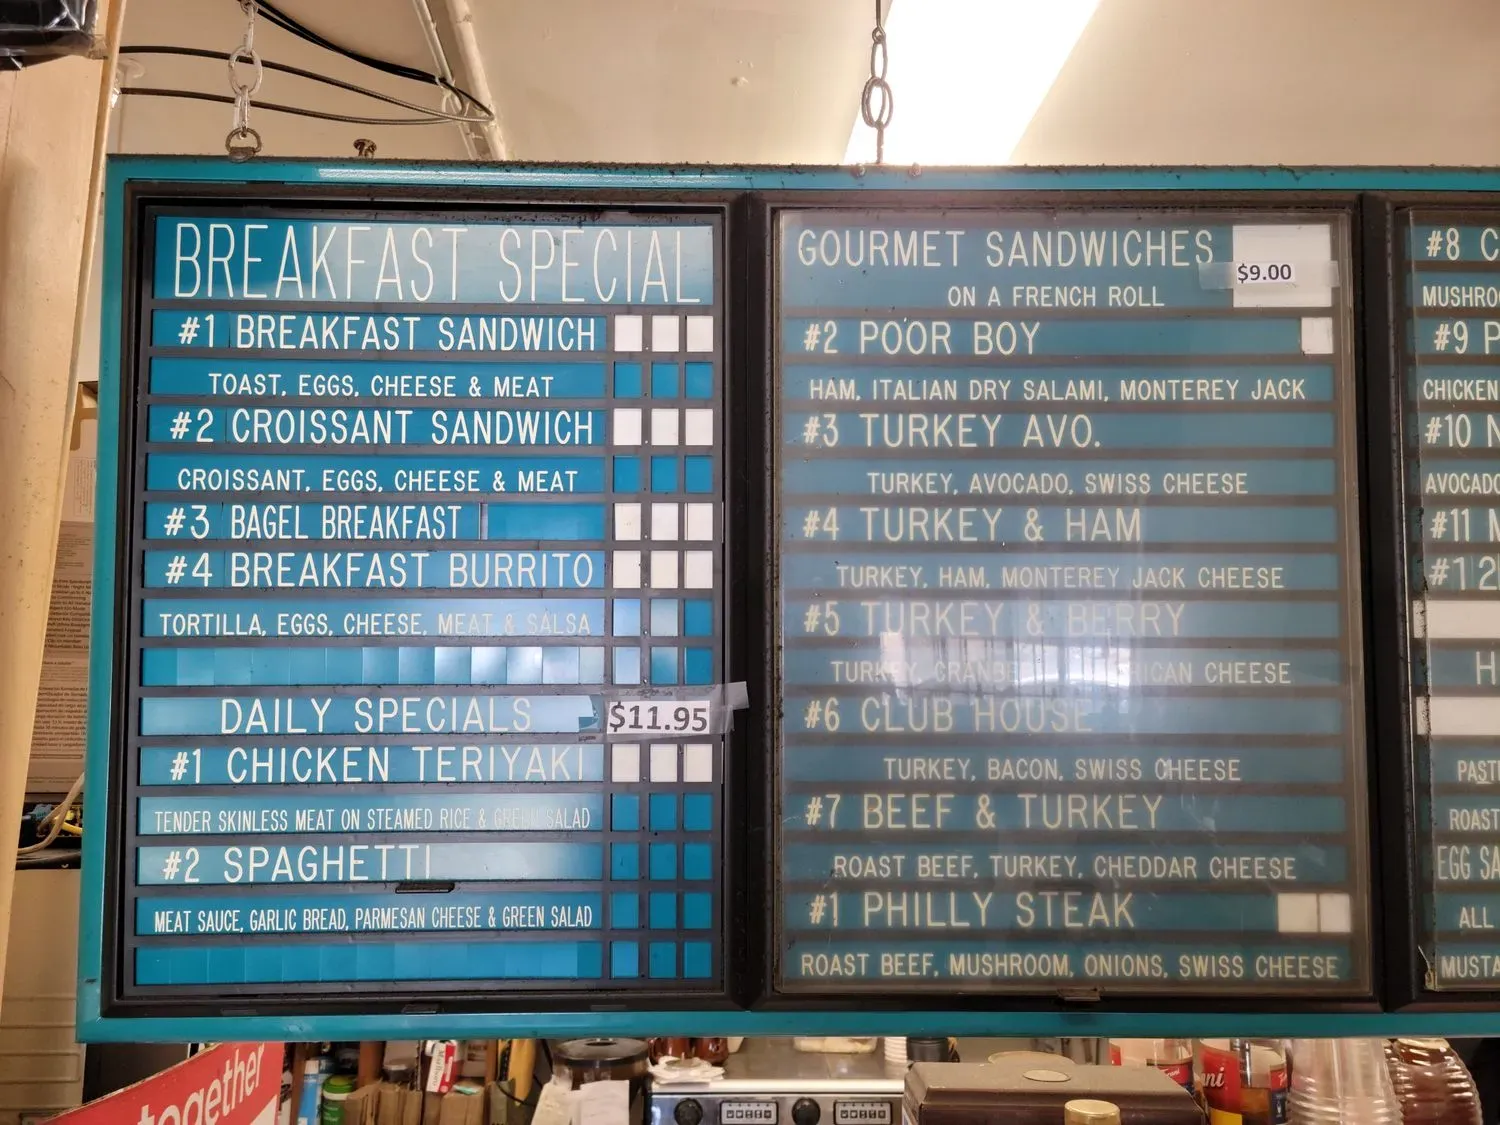 BREAKFAST SPECIAL
#1 BREAKFAST SANDWICH
TOAST, EGGS, CHEESE & MEAT
#2 CROISSANT SANDWICH
CROISSANT, EGGS, CHEESE & MEAT
#3 BAGEL BREAKFAST
#4 BREAKFAST BURRITO
TORTILLA, EGGS, CHEESE, MEAT & SALSA
DAILY SPECIALS $11.95
#1 CHICKEN TERIYAKI
TENDER SKINLESS MEAT ON STEAMED RICE & GREEN SALAD
#2 SPAGHETTI
MEAT SAUCE, GARLIC BREAD, PARMESAN CHEESE & GREEN SALAD
GOURMET SANDWICHES $9.00
ON A FRENCH ROLL
#2 POOR BOY
HAM, ITALIAN DRY SALAMI, MONTEREY JACK
#3 TURKEY AVO.
TURKEY, AVOCADO, SWISS CHEESE
#4 TURKEY & HAM
TURKEY, HAM, MONTEREY JACK CHEESE
#5 TURKEY & BERRY
TURKEY, CHEESE
#6 CLUB HOUSE
TURKEY, BACON, SWISS CHEESE
#7 BEEF & TURKEY
ROAST BEEF, TURKEY, CHEDDAR CHEESE
#1 PHILLY STEAK
ROAST BEEF, MUSHROOM, ONIONS, SWISS CHEESE
#8 C
MUSHRO
#9 P
CHICKEN
#10 N
AVOCADO
#11 M
#12
H
ROAST
EGG SA
ALL
MUSTA
together